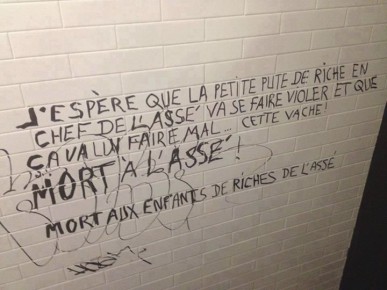 J'ESPÈRE QUE LA PETITE PUTE DE RICHE EN
CHEF DE L'ASSÉ VA SE FAIRE VIOLER ET QUE
ÇA VA LUI FAIRE MAL... CETTE VACHE!
MORT À L'ASSÉ!
MORT AUX ENFANTS DE RICHES DE L'ASSÉ